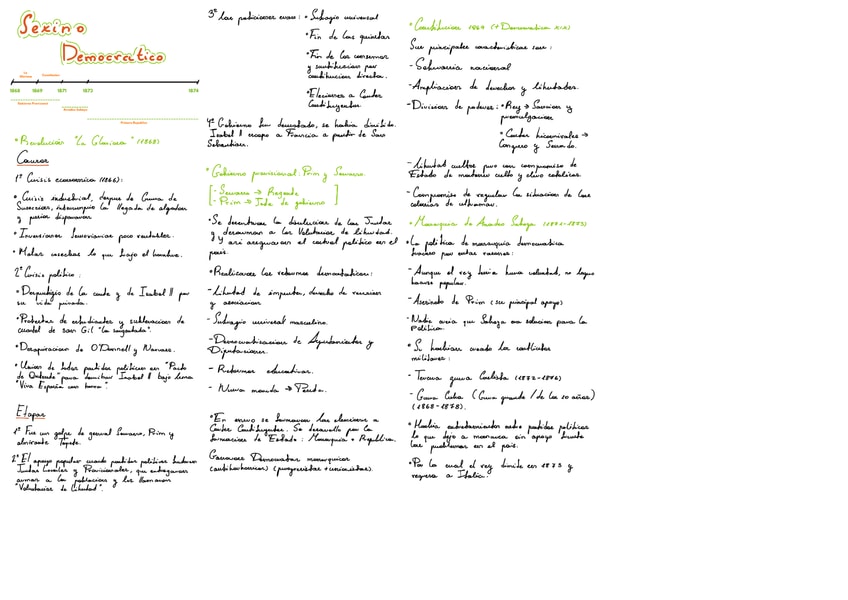 Sexino
Democratico
1868 1869 1871 1873 1874
* Revolución "La Gloriosa" (1868)
Causas
1º Crisis economica (1866):
* Crisis industrial, despues de Guerra de
Secesion, interrumpio la llegada de algodon
y precio dispararon
* Inversiones ferroviarias poco rentables.
* Malas cosechas lo que trajo el hambre.
2º Crisis politica:
* Desprestigio de la corte y de Isabel II por
su vida privada.
* Protestas de estudiantes y sublevacion de
cuartel de san Gil "la sargentada".
* Desaparicion de O'Donnell y Narvaez.
* Union de todos partidos politicos en "Pacto
de Ostende" para derribar Isabel II bajo lema
"Viva España con honra".
Etapas
1º Fue un golpe de general Serrano, Prim y
almirante Topete.
2º El apoyo popular cuando partidos politicos hicieron
Juntas Locales y Provinciales, que entregaron
armas a la poblacion y los llamaron
"Voluntarios de Libertad".
3º las peticiones eran: * Sufragio universal
* Fin de las quintas
* Fin de los consumos
y sustitucion por
contribucion directa.
* Elecciones a Cortes
Constituyentes.
4º Gobierno fue derrotado, se habia dimitido.
Isabel II escapo a Francia a partir de San
Sebastian.
* Gobierno provisional. Prim y Serrano
- Serrano → Regente
- Prim → Jefe de gobierno
* Se decretaron la disolucion de las Juntas
y desarmaron a los Voluntarios de libertad.
Y asi aseguraron el control politico en el
pais.
* Realizaron las reformas democraticas:
- Libertad de imprenta, derecho de reunion
y asociacion
- Sufragio universal masculino.
- Democratizacion de Ayuntamientos y
Diputaciones.
- Reformas educativas.
- Nueva moneda → Peseta.
* En enero se formaron las elecciones a
Cortes Constituyentes. Se desarrollo por la
formacion de Estado: Monarquia o Republica.
Ganaron Democratas monarquicos
(progresistas + unionistas).
* Constitucion 1869 (+ Democratica XIX)
Sus principales caracteristicas son:
- Soberania nacional
- Ampliacion de derechos y libertades.
- Division de poderes: * Rey → Sancion y
promulgacion
* Cortes bicamerales →
Congreso y Senado.
- Libertad cultos pero con compromiso de
Estado de mantener culto y clero catolicos.
- Compromiso de regular la situacion de las
colonias de ultramar.
* Monarquia de Amadeo Saboya (1871-1873)
* La politica de monarquia democratica
fracaso por estas razones:
- Aunque el rey tenia buena voluntad, no logro
hacerse popular.
- Asesinato de Prim (su principal apoyo)
- Nadie creia que Saboya era solucion para la
Politica.
* Se habian creado los conflictos
militares:
- Tercera guerra Carlista (1872-1876)
- Guerra Cuba (Guerra grande / de los 10 años)
(1868-1878).
* Habia entre partidos politicos
lo que dejo a monarca sin apoyo frente
los problemas en el pais.
* Por lo cual el rey dimite en 1873 y
regresa a Italia.